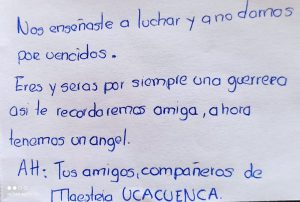 Nos enseñaste a luchar y a no darnos
por vencidos.
Eres y seras por siempre una guerrera
asi te recordaremos amiga, ahora
tenemos un angel.
AH: Tus amigos, compañeros de
Maestria UCACUENCA.